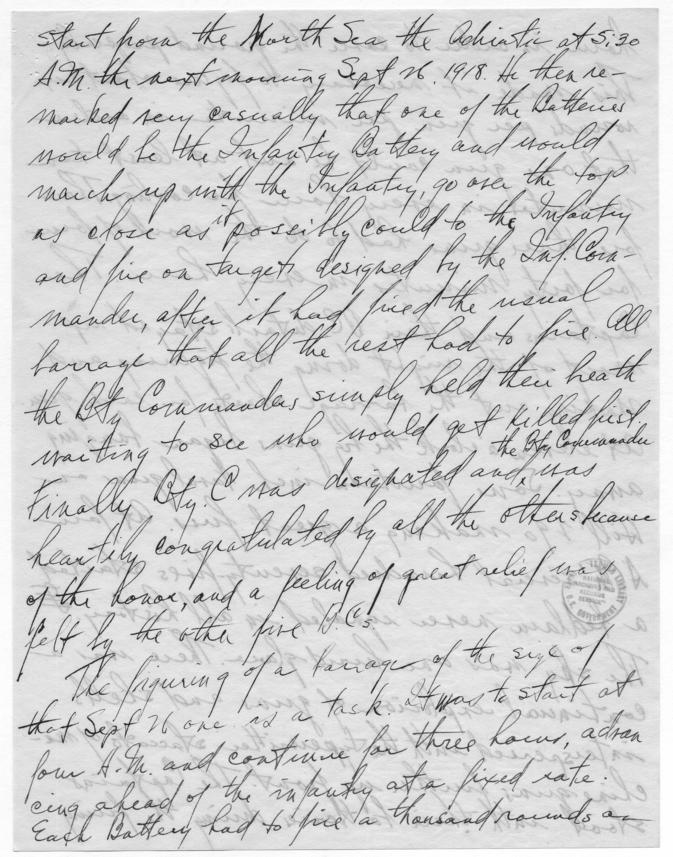 start from the North Sea the Adriatic at 5:30
A.M. the next morning Sept 26, 1918. He then re-
marked very casually that one of the Batteries
would be the Infantry Battery and would
march up with the Infantry, go over the top
as close as it possibly could to the Infantry
and fire on targets designed by the Inf. Com-
mander, after it had fired the usual
barrage that all the rest had to fire. All
the Bty Commanders simply held their breath
waiting to see who would get killed first.
Finally Bty. C was designated and the Bty Commander was
heartily congratulated by all the others because
of the honor, and a feeling of great relief was
felt by the other five B.C's.
The figuring of a barrage of the size of
that Sept 26 one is a task. It was to start at
four A.M. and continue for three hours, advan
cing ahead of the infantry at a fixed rate.
Each Battery had to fire a thousand rounds an